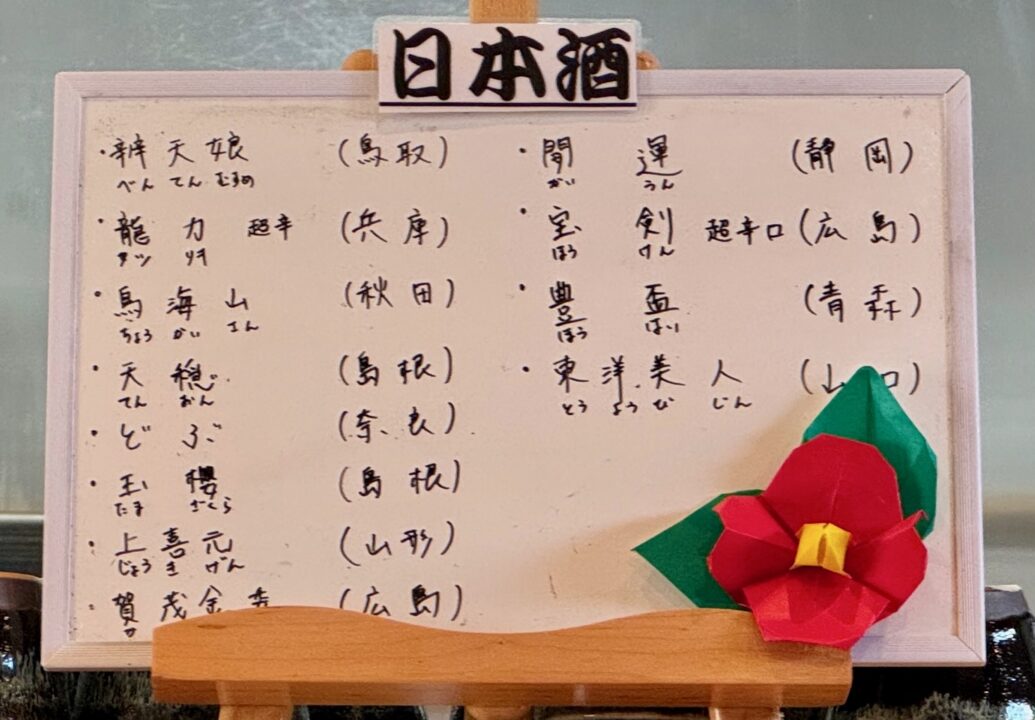 日本酒
・辨天娘 (鳥取)
べん てん むすめ
・龍力 超辛 (兵庫)
タツ リキ
・鳥海山 (秋田)
ちょう かい さん
・天穏 (島根)
てん おん
・どぶ (奈良)
・玉櫻 (島根)
たま ざくら
・上喜元 (山形)
じょう き げん
・賀茂金秀 (広島)
カ
・開運 (静岡)
かい うん
・宝剣 超辛口 (広島)
ほう けん
・豊盃 (青森)
ほう はい
・東洋美人 (山口)
とう よう び じん